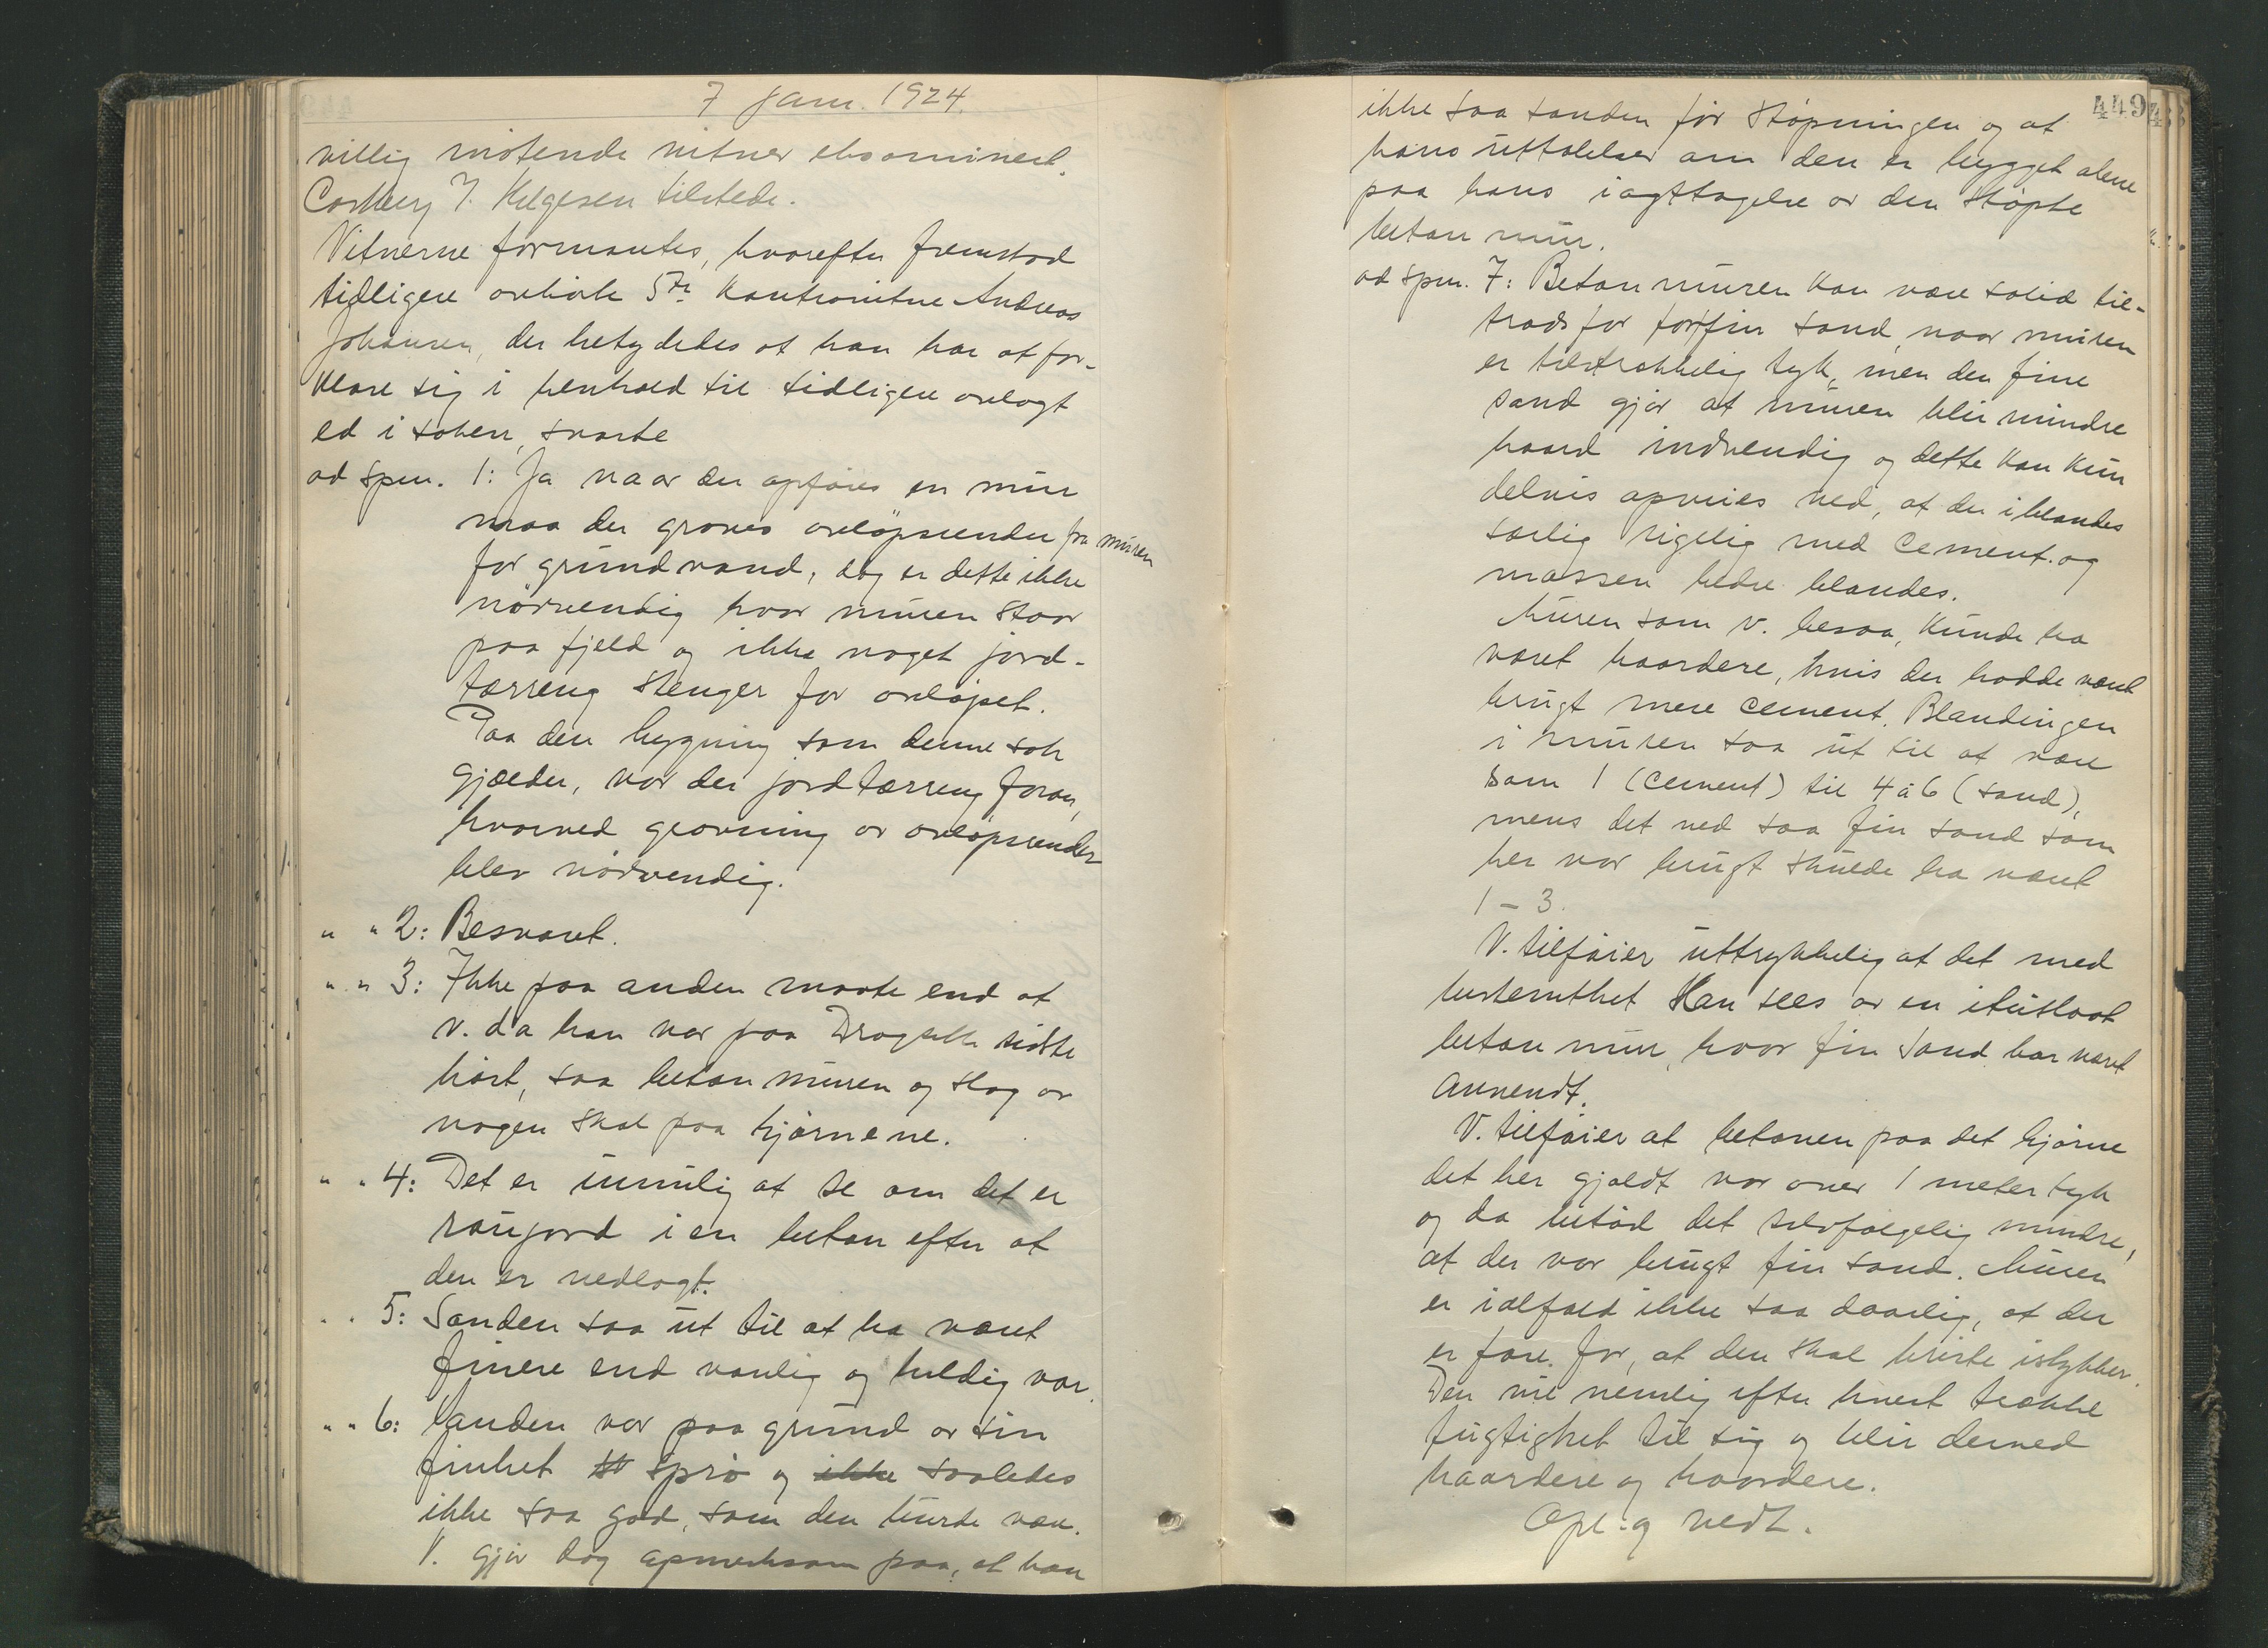 7 Janr. 1924.
villig møtende vitner eksaminert.
J. Helgesen tilstede.
Vitnerne formantes, hvorefter fremstod
tidligere avhørte 5te kontravitne Andreas
Johansen, der betydedes at han har at for-
klare sig i henhold til tidligere avlagt
ed i saken, svarte
ad spm. 1: Ja naar der opføres en mur
maa der graves avløpsrender fra muren
for grundvand, dog er dette ikke
nødvendig hvor muren staar
paa fjeld og ikke noget jord-
tærreng stenger for avløpet.
Paa den bygning som denne sak
gjælder, var der jordtærreng foran,
hvorved gravning av avløpsrender
blev nødvendig.
" " 2: Besvaret.
" " 3: Ikke paa anden maate end at
v. da han var paa sidste
høst, saa beton muren og slog av
nogen skal paa hjørnene.
" " 4: Det er umulig at se om det er
raujord i en beton efter at
den er nedlagt.
" " 5: Sanden saa ut til at ha været
finere end vanlig og heldig var.
" " 6: Sanden var paa grund av sin
finhet st sprø og ikke saaledes
ikke saa god, som den burde være.
V. gjør dog opmerksom paa, at han
449
ikke saa sanden før støpningen og at
hans uttalelser om den er bygget alene
paa hans iagttagelse av den støpte
beton mur.
ad spm. 7: Beton muren kan være solid til-
trods for forfin sand, naar muren
er tilstrækkelig tyk, men den fine
sand gjør at muren blir mindre
haard indvendig og dette kan kun
delvis opveies ved, at der iblandes
særlig rigelig med cement og
massen bedre blandes.
Muren som v. besaa, kunde ha
været haardere, hvis der hadde været
brugt mere cement. Blandingen
i muren saa ut til at være
som 1 (cement) til 4 à 6 (sand),
mens det ved saa fin sand som
her var brugt skulde ha været
1 – 3.
V. tilføier uttrykkelig at det med
bestemthet kan sees av en ituslaat
beton mur, hvor fin sand har været
anvendt.
V. tilføier at betonen paa det hjørne
det her gjaldt var over 1 meter tyk
og da betød det selvfølgelig mindre,
at der var brugt fin sand. Muren
er ialfald ikke saa daarlig, at der
er fare for, at den skal briste istykker.
Den vil nemlig efter hvert trække
fugtighet til sig og blir derved
haardere og haardere.
Opl. og vedt.